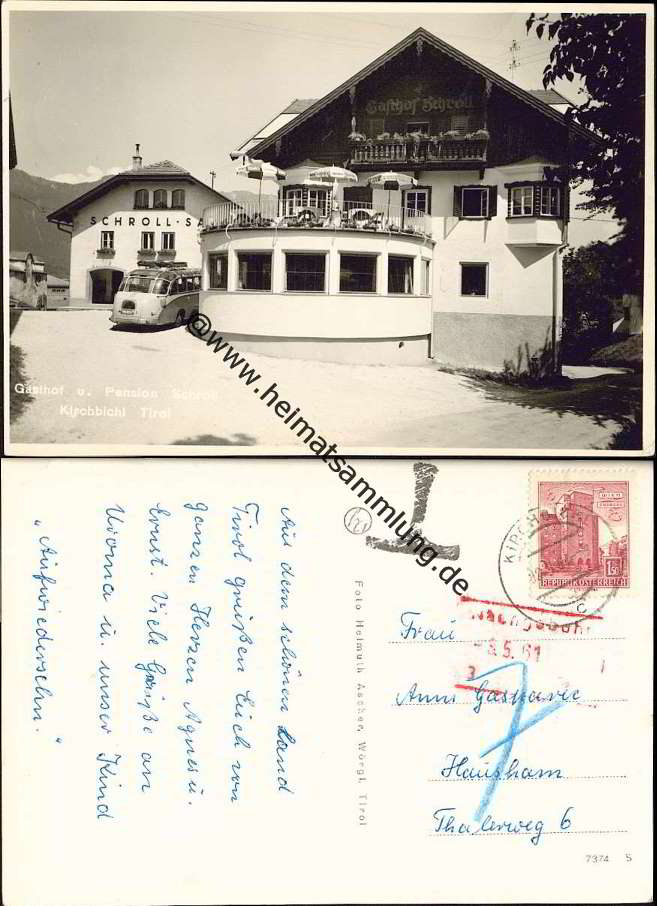 Gasthof Schroll
SCHROLL · S
Gasthof u. Pension Schroll
Kirchbichl Tirol
@www.heimatsammlung.de
Aus dem schönen Land
Tirol grüßen Euch von
ganzen Herzen Agnes u.
Ernst. Viele Grüße an
u. unser Kind
"Aufwiedersehn."
Foto Helmuth Ascher, Wörgl, Tirol
T
WIEN
1.50
REPUBLIK ÖSTERREICH
KIRCHB
c
Nachgebühr
5.61
7
Frau
Anni
Hausham
Thalerweg 6
7374 S